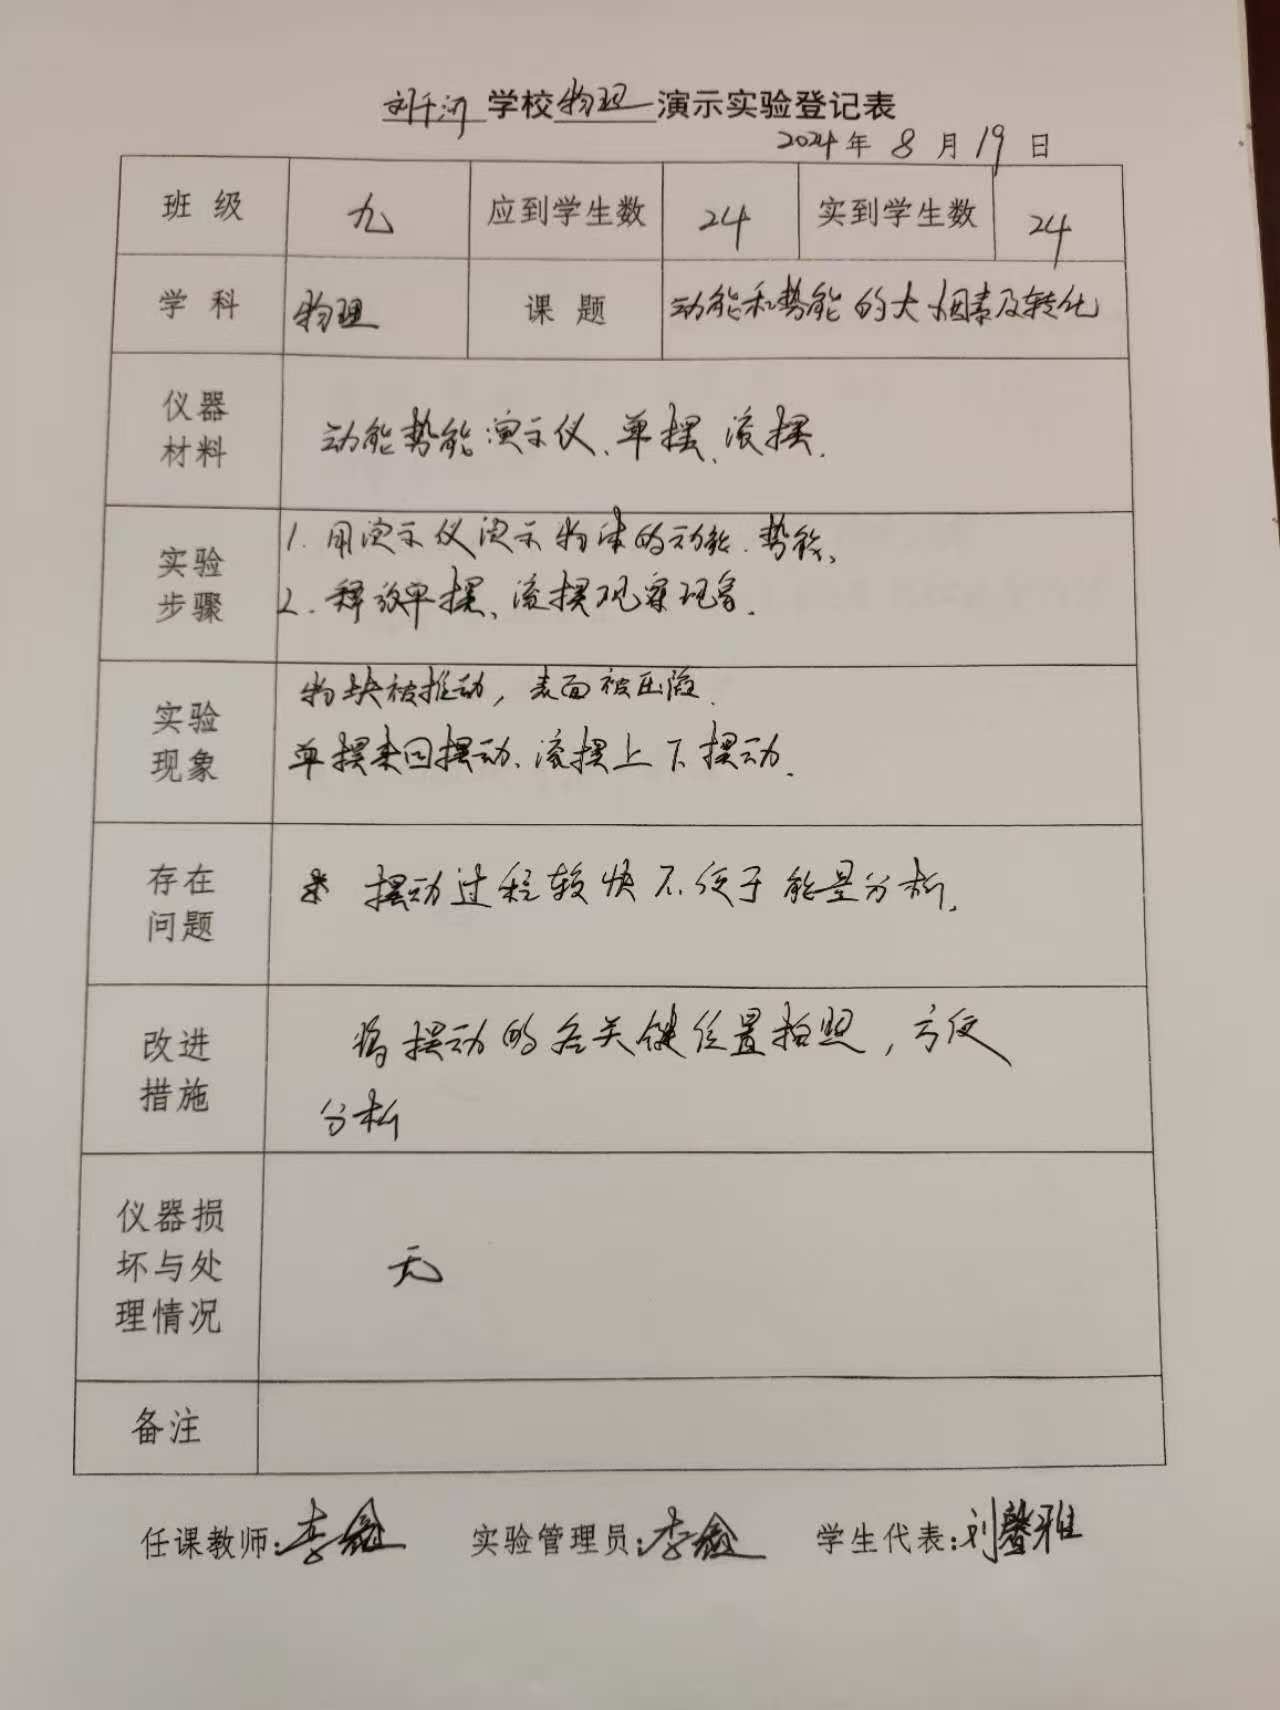 刘千河 学校 物理 演示实验登记表
2024年 8 月 19 日
班 级 九 应到学生数 24 实到学生数 24
学 科 物理 课 题 动能和势能的大小因素及转化
仪器
材料
动能势能演示仪、单摆、滚摆.
实验
步骤
1. 用演示仪演示物体的动能、势能、
2. 释放单摆、滚摆观察现象.
实验
现象
物块被推动，表面被压陷.
单摆来回摆动、滚摆上下摆动.
存在
问题
摆动过程较快不便于能量分析.
改进
措施
将摆动的各关键位置拍照，方便
分析
仪器损
坏与处
理情况
无
备注
任课教师：李鑫 实验管理员：李鑫 学生代表：刘馨雅